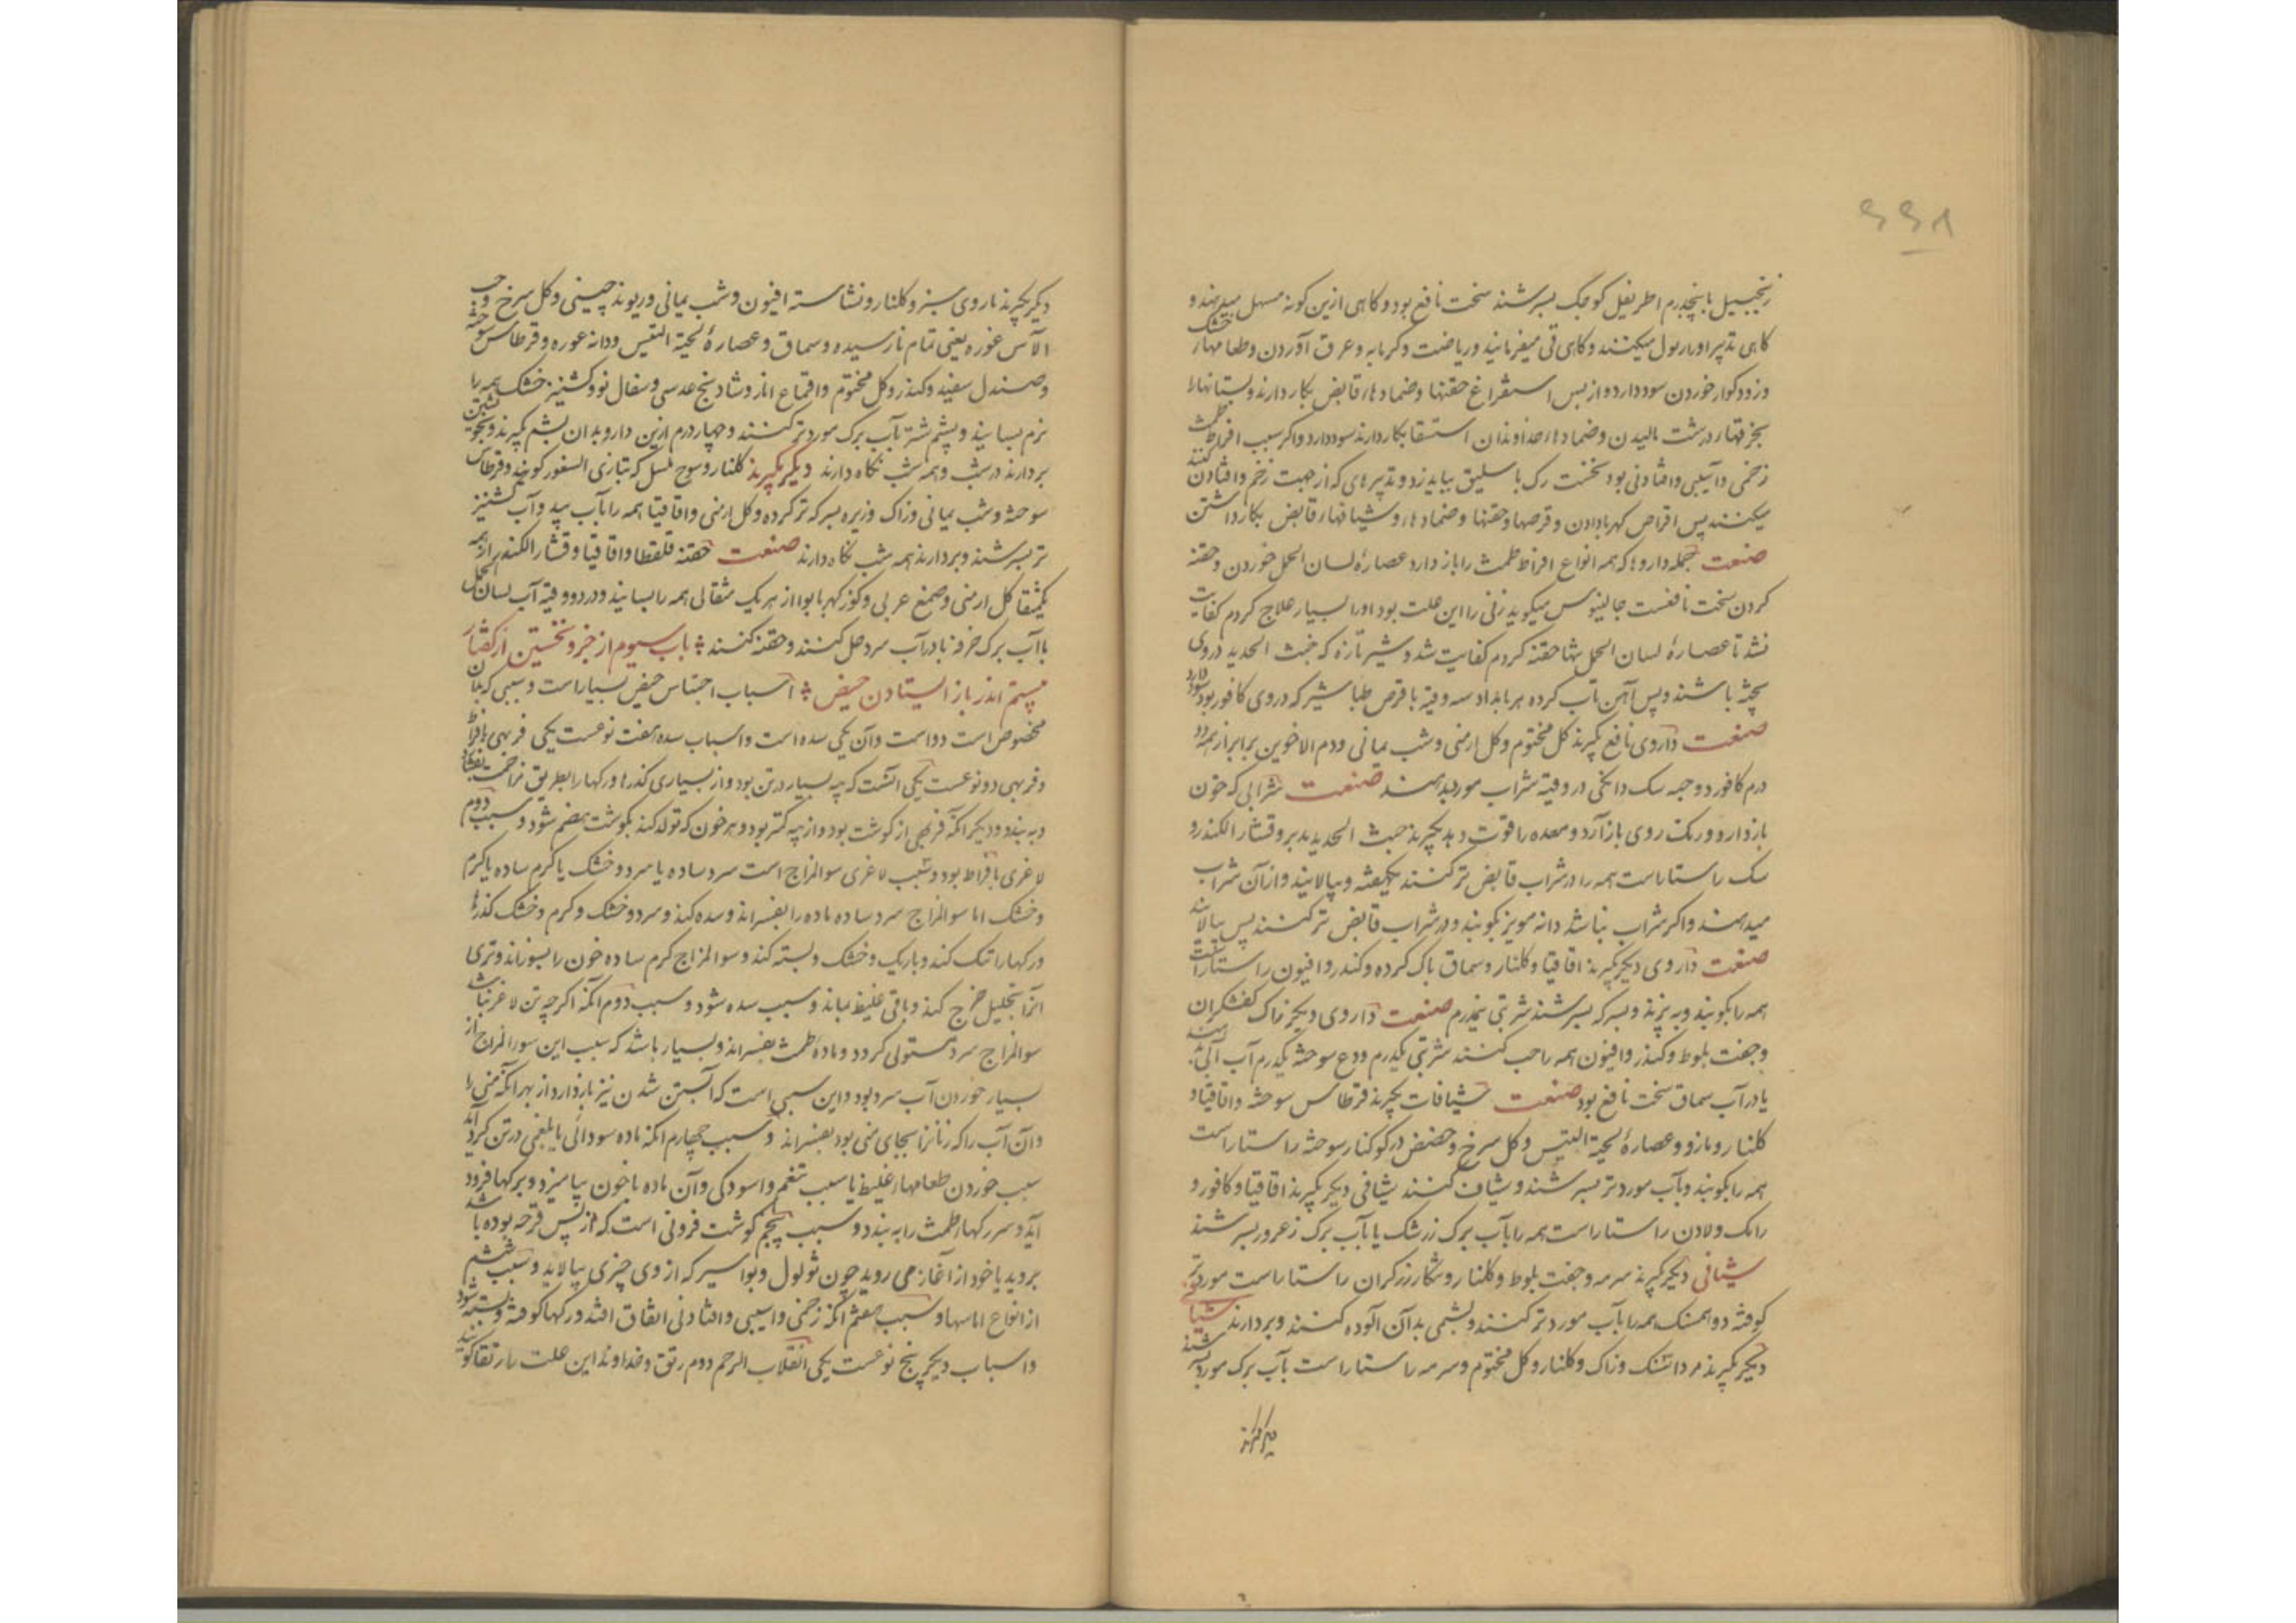 ۶۶۸
زنجبیل با پنجدرم اطریفل کوچک بسرشند سخت نافع بود و کاهی ازین کونه مسهل میدهند و
کاهی تدبیر ادرار بول میکنند و کاهی قی میفرمایند و ریاضت و کرمابه و عرق آوردن و طعامهاء خشک
و زودکوار خوردن سود دارد و از بس استفراغ حقنها و ضمادهاء قابض بکار دارند و پستانها را
بخرقهاء درشت مالیدن و ضمادهاء خداوندان استسقا بکار دارند سود دارد و اکر سبب افراط طمث
زخمی و آسیبی و افتادنی بود نخست رک باسلیق بباید زد و تدبیرهای که از جهت زخم و افتادن کنند
میکنند پس اقراص کهربا دادن و قرصها و حقنها و ضمادهاء و شیافهاء قابض بکار داشتن
صنعت جمله داروها که همه انواع افراط طمث را باز دارد عصارهٔ لسان الحمل خوردن و حقنه
کردن سخت نافعست جالینوس میکوید زنی را این علت بود او را بسیار علاج کردم کفایت
نشد تا عصارهٔ لسان الحمل تنها حقنه کردم کفایت شد و شیر تازه که خبث الحدید در وی
پخته باشند و پس آهن تاب کرده هر بامداد سه وقیه با قرص طباشیر که در وی کافور بود سود دارد
صنعت داروی نافع بکیرند کل مختوم و کل ارمنی و شب یمانی و دم الاخوین برابر از همه دو
درم کافور دو حبه سک دانکی در وقیه شراب مورد بدهند صنعت شرابی که خون
باز دارد و رنک روی باز آرد و معده را قوت دهد بکیرند خبث الحدید مدبر و قشار الکندر و
سک راستاراست همه را در شراب قابض تر کنند یکهفته و بپالایند و از آن شراب
میدهند و اکر شراب نباشد دانه مویز بکوبند و در شراب قابض تر کنند پس بپالایند
صنعت داروی دیکر بکیرند اقاقیا و کلنار و سماق پاک کرده و کندر و افیون راستاراست
همه را بکوبند و به پزند و بسرکه بسرشند شربتی نیمدرم صنعت داروی دیکر زاک کفشکران
و جفت بلوط و کندر و افیون همه را حب کنند شربتی یکدرم ودع سوخته یکدرم آب آبی دهند
یا در آب سماق سخت نافع بود صنعت شیافات بکیرند قرطاس سوخته و اقاقیا و
کلنار و مازو و عصارهٔ لحیة التیس و کل سرخ و حضض و کوکنار سوخته راستاراست
همه را بکوبند و بآب مورد تر بسرشند و شیاف کنند شیافی دیکر بکیرند اقاقیا و کافور و
رامک و لادن راستاراست همه را بآب برک زرشک یا بآب برک زعرور بسرشند
شیافی دیکر بکیرند سرمه و جفت بلوط و کلنار و شکار زرکران راستاراست مورد تر
کوفته دو همسنک همه را بآب مورد تر کنند و پشمی بدان آلوده کنند و بردارند شیافی
دیکر بکیرند مرداسنک و زاک و کلنار و کل مختوم و سرمه راستاراست بآب برک مورد بسرشند
دیکر بکیرند
دیکر بکیرند ناروی سبز و کلنار و نشاسته افیون و شب یمانی و ریوند چینی و کل سرخ و حب
الآس غوره یعنی تمام نارسیده و سماق و عصارهٔ لحیة التیس و دانه غوره و قرطاس سوخته
و صندل سفید و کندر و کل مختوم و اقماع انار و شادنج عدسی و سفال نو و کشنیز خشک همه را
نرم بسایند و پشم شتر بآب برک مورد تر کنند و چهار درم ازین دارو بدان پشم بکیرند و بخویشتن
بردارند در شب و همه شب نکاه دارند دیکر بکیرند کلنار و سوخ عسل که بتازی السفور کویند و قرطاس
سوخته و شب یمانی و زاک و زیره بسرکه تر کرده و کل ارمنی و اقاقیا همه را بآب بید و آب کشنیز
تر بسرشند و بردارند همه شب نکاه دارند صنعت حقنه قلقطار و اقاقیا و قشار الکندر از همه
یکمثقال کل ارمنی و صمغ عربی و کوز کهربا بوا از هر یک مثقالی همه را بسایند و در دو وقیه آب لسان الحمل
یا آب برک خرفه یا در آب سرد حل کنند و حقنه کنند باب سیوم از جزو نخستین از کفتار
بیستم اندر باز ایستادن حیض اسباب احتباس حیض بسیار است و سببی که بدان
مخصوص است دو است و آن یکی سده است و اسباب سده هفت نوعست یکی فربهی بافراط
و فربهی دو نوعست یکی آنست که پیه بسیار در تن بود و از بسیاری کذرها و رکها را بطریق مزاحمت بفشارد
و به بندد و دیکر آنکه فربهی از کوشت بود و از پیه کمتر بود و هر خون که تولد کند بکوشت هضم شود و سبب دوم
لاغری بافراط بود و سبب لاغری سوالمزاج است سرد ساده یا سرد و خشک یا کرم ساده یا کرم
و خشک اما سوالمزاج سرد ساده ماده را بفسراند و سده کند و سرد و خشک و کرم و خشک کذرها
و رکها را تنک کند و باریک و خشک و بسته کند و سوالمزاج کرم ساده خون را بسوزاند و تری
آنرا بتحلیل خرج کند و باقی غلیظ بماند و سبب سده شود و سبب دوم آنکه اکر چه تن لاغر نباشد
سوالمزاج سرد مستولی کردد و مادهٔ طمث بفسراند و بسیار باشد که سبب این سورالمزاج از
بسیار خوردن آب سرد بود و این سببی است که آبستن شدن نیز باز دارد از بهر آنکه منی را
و آن آب را که زنانرا بجای منی بود بفسراند و سبب چهارم آنکه ماده سودائی یا بلغمی در تن کرد آید
سبب خوردن طعامهاء غلیظ یا سبب تنعم و آسودکی و آن ماده با خون بیامیزد و برکها فرود
آید و سر رکهاء طمث را به بندد و سبب پنجم کوشت فزونی است که از پس قرحه بوده باشد
بروید یا خود از آغاز می روید چون ثولول و بواسیر که از وی چیزی بپالاید و سبب ششم
از انواع اماسها و سبب هفتم آنکه زخمی و آسیبی و افتادنی اتفاق افتد و رکها کوفته و بسته شود
و اسباب دیکر پنج نوعست یکی انقلاب الرحم دوم رتق و خداوند این علت را رتقا کویند